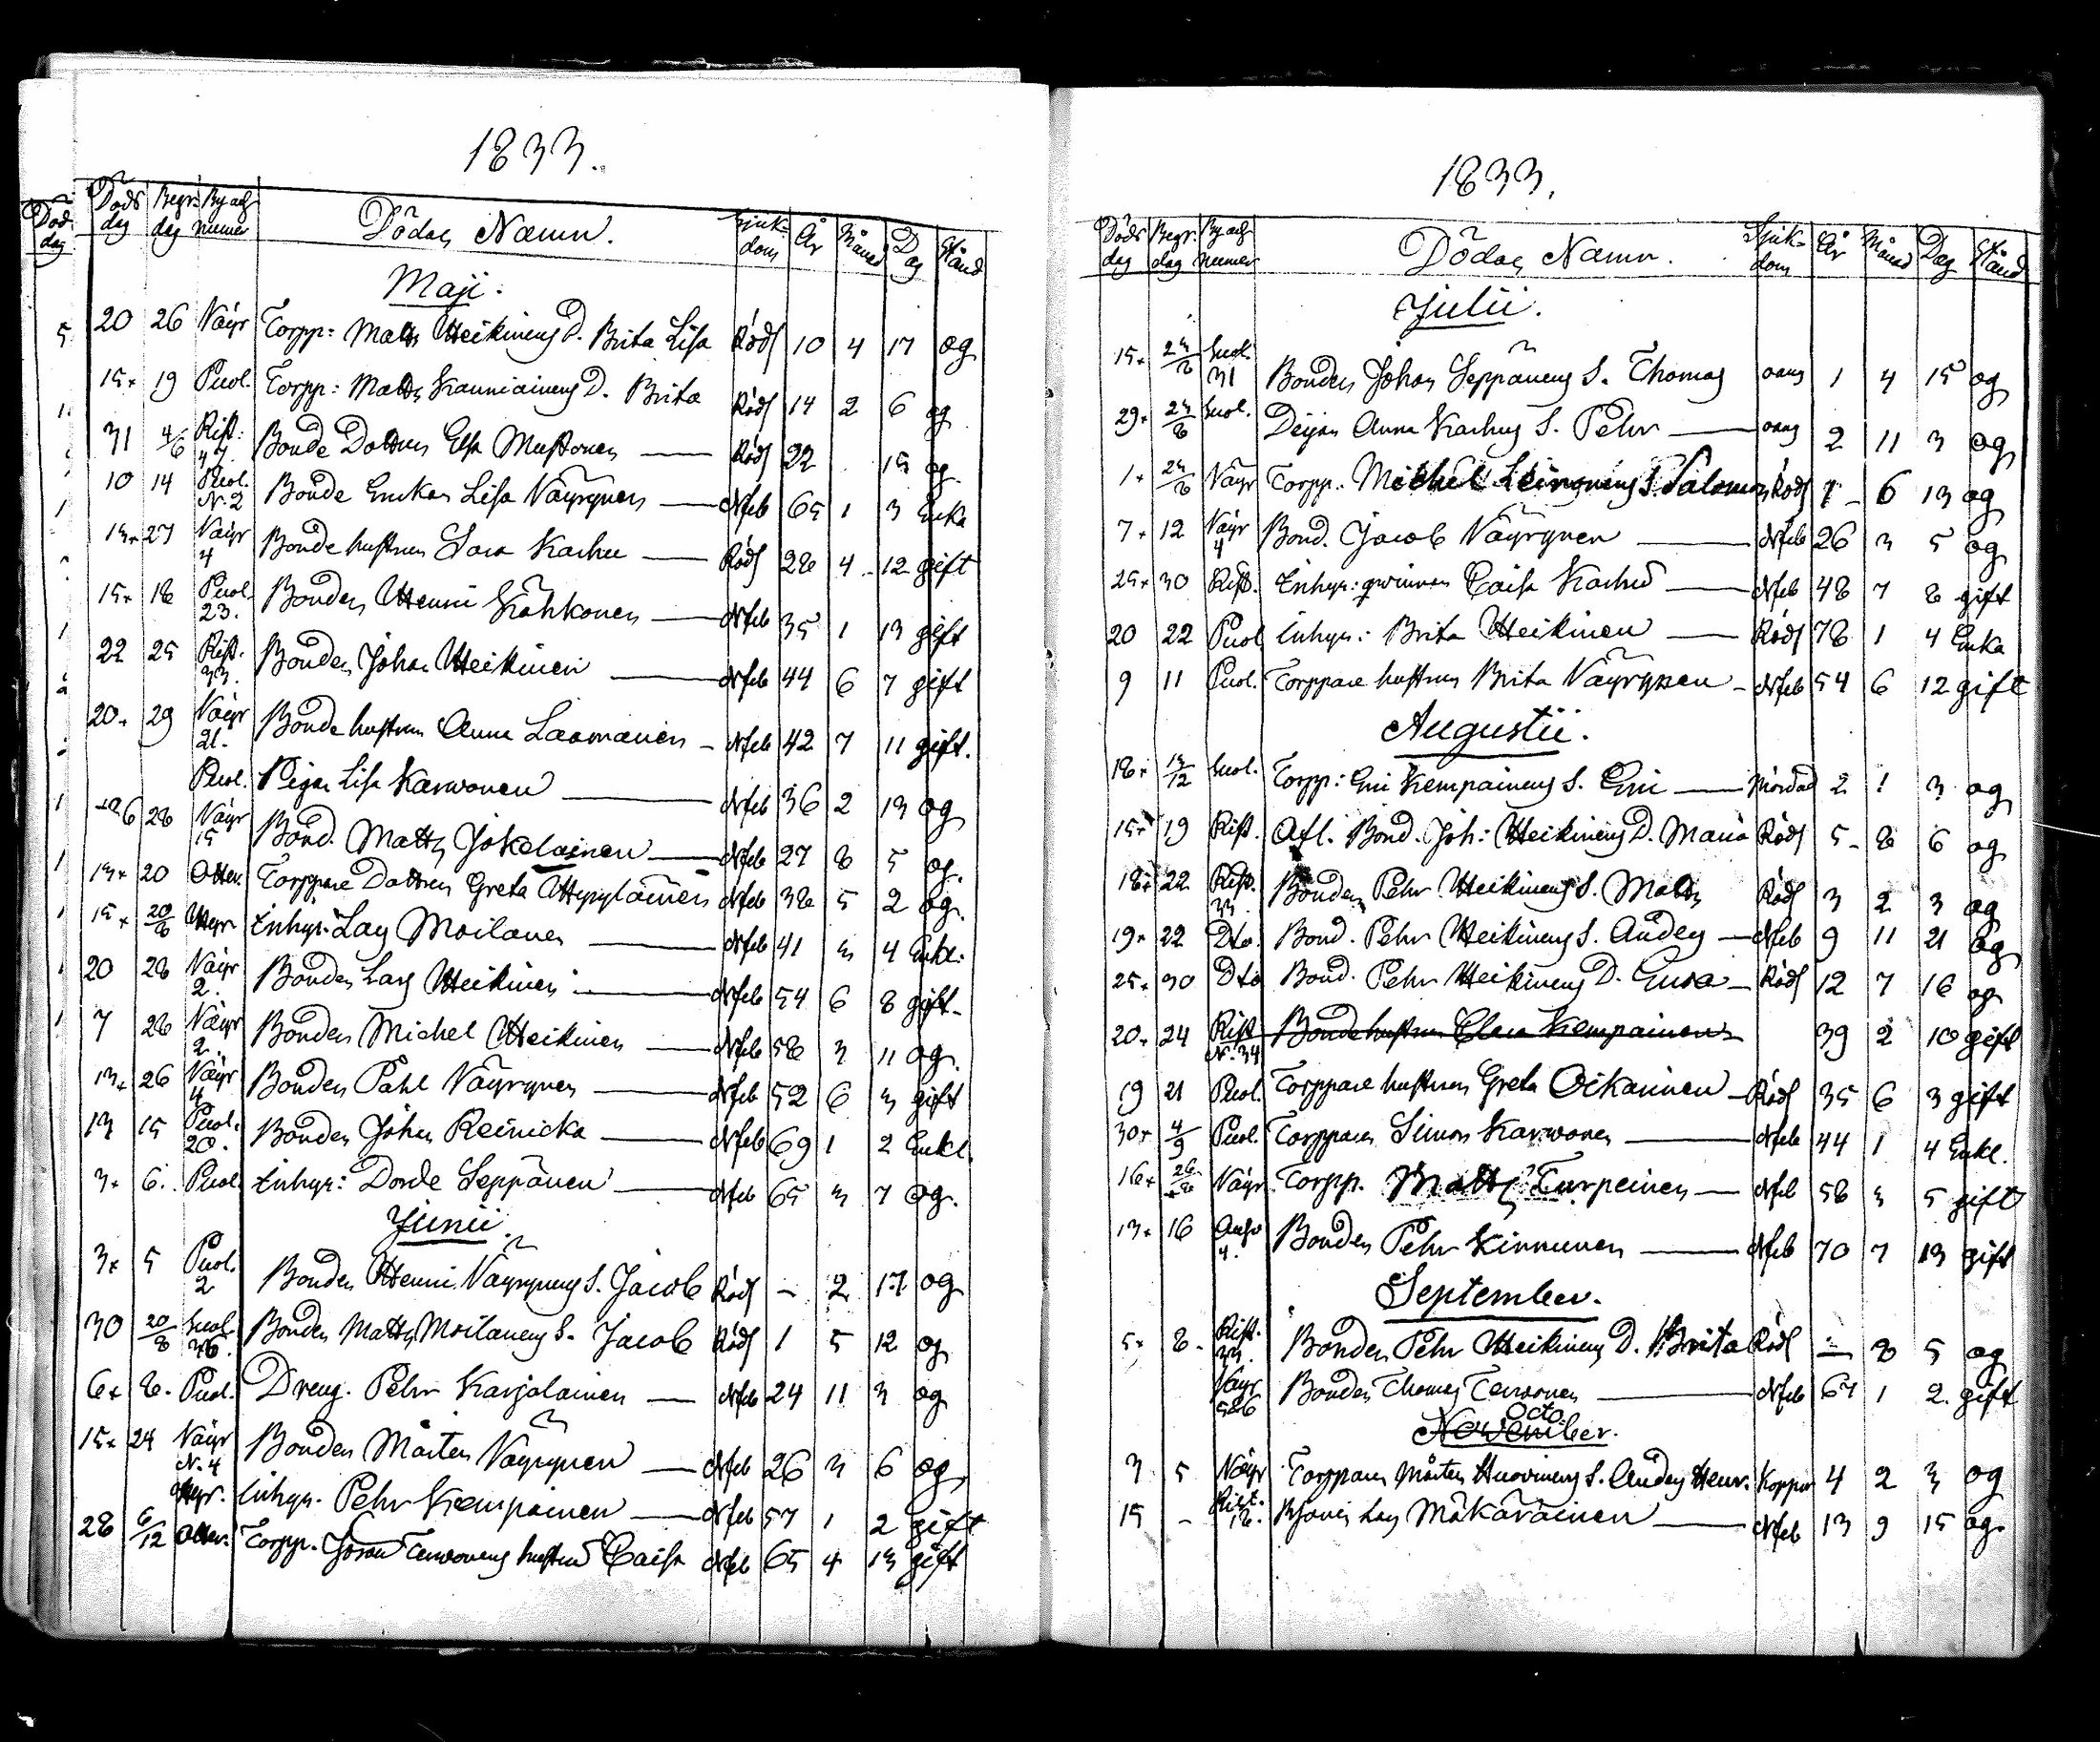 1833.
Döds dag Begr. dag By och numer Dödas Namn. Sjukdom År Månad Dag Stånd
Maji.
20 26 Väyr Torpp: Matts Heikinens D. Brita Lisa Röds 10 4 17 og
15 19 Puol. Torpp: Matts Kauniainens D. Brita Röds 14 2 6 og
31 4/6 Rist: 47. Bonde Dottren Elsa Mustonen Röds 22 15 og
10 14 Puol. N. 2 Bonde Enkan Lisa Väyrynen Nfeb 65 1 3 Enka
13 27 Väyr 4 Bonde hustrun Sara Karhu Röds 28 4 12 gift
15 18 Puol. 23. Bonden Henric Kähkönen Nfeb 35 1 13 gift
22 25 Rist. 33. Bonden Johan Heikinen Nfeb 44 6 7 gift
20 29 Väyr 21. Bonde hustrun Anna Laamanen Nfeb 42 7 11 gift.
Puol. Pigan Lisa Karwonen Nfeb 36 2 13 og
26 28 Väyr 15 Bond. Matts Jokelainen Nfeb 27 8 5 og.
13 20 Otter. Torppare Dottren Greta Hyyryläinen Nfeb 38 5 2 og.
15 20/8 Hyr. Inhys: Lars Moilanen Nfeb 41 3 4 Enkl.
20 28 Väyr 2. Bonden Lars Heikinen Nfeb 54 6 8 gift
7 28 Väyr 2. Bonden Michel Heikinen Nfeb 58 3 11 og.
13 26 Väyr 4 Bonden Pahl Väyrynen Nfeb 52 6 3 gift
13 15 Puol. 20. Bonden Johan Reinicka Nfeb 69 1 2 Enkl.
3 6. Puol. Inhys: Dorde Seppänen Nfeb 65 3 7 og.
Junii.
3 5 Puol. 2 Bonden Henric Väyrynens S. Jacob Röds - 2 17 og
30 20/8 Suol. 36. Bonden Matts Moilanens S. Jacob Röds 1 5 12 og
6 8. Puol. Dreng. Pehr Karjalainen Nfeb 24 11 3 og
15 24 Väyr N. 4 Bonden Mårten Väyrynen Nfeb 26 3 6 og
Hyr. Inhys. Pehr Kempainen Nfeb 57 1 2 gift
28 6/12 Otter. Torpp. Jöran Terwonens hustru Caisa Nfeb 65 4 13 gift
1833.
Döds dag Begr. dag By och numer Dödas Namn. Sjukdom År Månad Dag Stånd
Julii.
15 24/8 Suol. 31 Bonden Johan Seppänens S. Thomas oang 1 4 15 og
29 24/8 Suol. Anna Karhus S. Pehr oang 2 11 3 og
1 24/8 Väyr Torpp. Michel Leinonens S. Salomon Röds 1 6 13 og
7 12 Väyr 4 Bond. Jacob Väyrynen Nfeb 26 3 5 og
25 30 Rist. Inhys: qwinnan Caisa Karhu Nfeb 48 7 8 gift
20 22 Puol Inhys: Brita Heikinen Röds 78 1 4 Enka
9 11 Puol. Torppare hustrun Brita Väyrynen Nfeb 54 6 12 gift
Augustii.
18 13/12 Suol. Torpp: Eric Kempainens S. Eric Mördad 2 1 3 og
15 19 Rist. Afl. Bond. Joh: Heikinens D. Maria Röds 5 8 6 og
18 22 Rist. 33. Bonden Pehr Heikinens S. Matts Röds 3 2 3 og
19 22 Dto. Bond. Pehr Heikinens S. Anders Nfeb 9 11 21 og
25 30 Dto Bond. Pehr Heikinens D. Röds 12 7 16 og
20 24 Rist N. 34 Bonde hustrun Clara Kempainen 39 2 10 gift
19 21 Puol. Torppare hustrun Greta Oikarinen Röds 35 6 3 gift
30 4/9 Puol. Torpparen Simon Karwonen Nfeb 44 1 4 Enkl.
16 26/8 Väyr. Torpp. Matts Turpeinen Nfeb 58 3 5 gift
13 16 4. Bonden Pehr Kinnunen Nfeb 70 7 13 gift
September.
5 8. Rist. 33. Bonden Pehr Heikinens D. Brita Röds - 8 5 og
Väyr Bonden Thomas Terwonen Nfeb 67 1 2. gift
Octo
November.
3 5 Väyr Torpparen Mårten Huovinens S. Anders Henr. Koppor 4 2 3 og
15 - Rist. 18. Lars Mäkäräinen Nfeb 13 9 15 og.